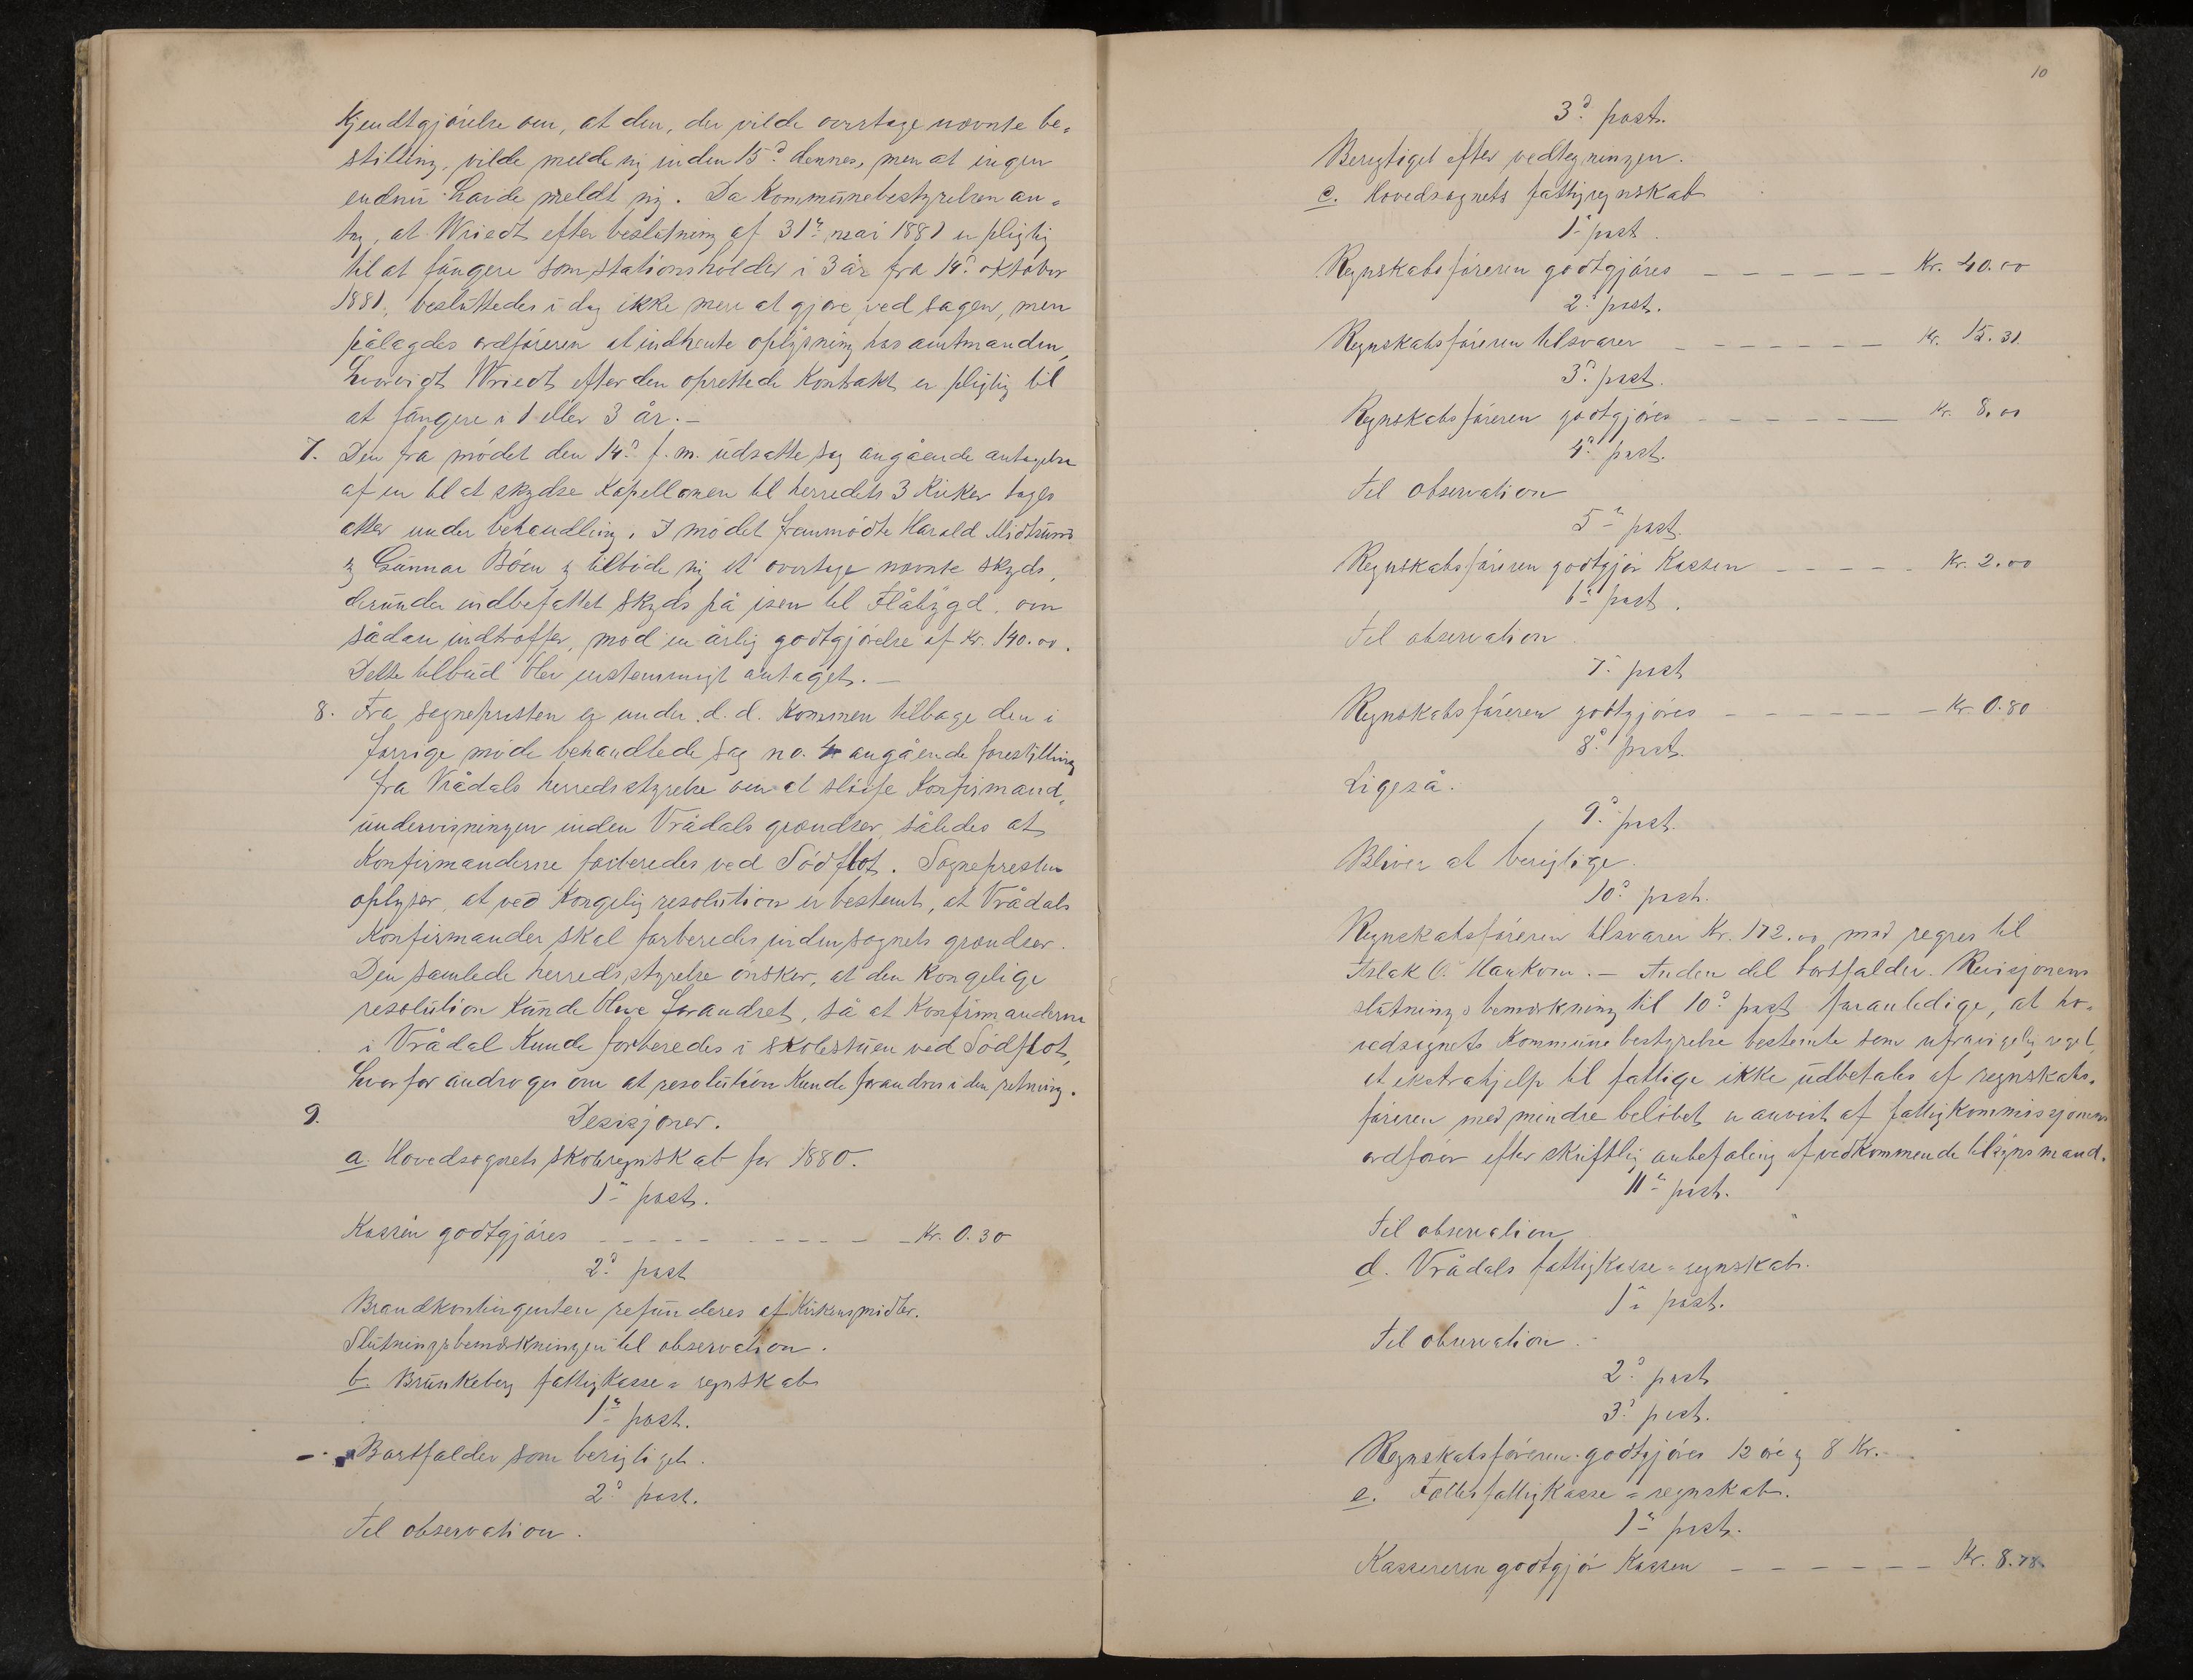 Kjendtgjørelse om, at den, der vilde overtage nævnte be-
stilling, vilde melde sig inden 15d dennes, men at ingen
endnu havde meldt sig. Da Kommunebestyrelsen an-
tog, at Wriedt efter beslutning af 31te mai 1881 er pligtig
til at fungere som stationsholder i 3 år fra 14d oktober
1881, besluttedes i dag ikke mere at gjøre ved sagen, men
pålagdes ordføreren at indhente oplysning hos amtmanden,
hvorvidt Wriedt efter den oprettede Kontrakt er pligtig til
at fungere i 1 eller 3 år. –
7. Den fra mødet den 14d f. m. udsatte sag angående antagelse
af en til at skydse Kapellanen til herredets 3 Kirker toges
atter under behandling. I mødet fremmødte Harald Midtsund
og Gunnar Bøen og tilbøde sig at overtage nævnte skyds,
derunder indbefattet skyds på isen til Flåbygd, om
sådan indtræffer, mod en årlig godtgjørelse af Kr. 140.00.
Dette tilbud blev enstemmigt antaget. –
8. Fra sognepresten er under d. d. Kommen tilbage den i
forrige møde behandlede sag no. 4 angående forestilling
fra Vrådals herredsstyrelse om at sløife Konfirmand-
undervisningen inden Vrådals grændser, således at
Konfirmanderne forberedes ved Sødflot. Sognepresten
oplyser, at ved Kongelig resolution er bestemt, at Vrådals
Konfirmander skal forberedes inden sognets grændser.
Den samlede herredsstyrelse ønsker, at den Kongelige
resolution Kunde blive forandret, så at Konfirmanderne
i Vrådal Kunde forberedes i skolestuen ved Sødflot,
hvorfor androges om at resolution Kunde forandres i den retning.
9. Desisjoner.
a. Hovedsognets skoleregnskab for 1880.
1te post.
Kassen godtgjøres – – – – – – – – – Kr. 0.30
2d post
Brandkontingenten refunderes af Kirkens midler.
Slutningsbemærkningen til observation.
b. Brunkeberg fattigkasse-regnskab
1te post.
Bortfalder som berigtiget.
2d post.
Til observation.
10
3d post.
Berigtiget efter vedtegningen.
c. Hovedsognets fattigregnskab
1te post.
Regnskabsføreren godtgjøres – – – – – – Kr. 40.00
2d post.
Regnskabsføreren tilsvarer – – – – – – Kr. 15.31
3d post.
Regnskabsføreren godtgjøres – – – – – – Kr. 8.00
4d post.
Til observation
5te post.
Regnskabsføreren godtgjør Kassen – – – – – Kr. 2.00
6te post.
Til observation
7d post
Regnskabsføreren godtgjøres – – – – – – Kr. 0.80
8d post.
Ligeså.
9d post.
Bliver at berigtige.
10d post.
Regnskabsføreren tilsvarer Kr. 172.00 med regres til
Aslak O. Haukom. – Anden del bortfalder. Revisjonens
slutningsbemærkning til 10d post foranledige, at ho-
vedsognets Kommunebestyrelse bestemte som ufravigelig regel,
at ekstrahjelp til fattige ikke udbetales af regnskabs-
føreren med mindre beløbet er anvist af fattigkommissjonens
ordfører efter skriftlig anbefaling af vedkommende tilsynsmand.
11te post.
Til observation
d. Vrådals fattigkasse-regnskab.
1te post.
Til observation.
2d post
3d post.
Regnskabsføreren godtgjøres 12 øre og 8 Kr. –
e. Fælles fattigkasse-regnskab.
1te post.
Kassereren godtgjør Kassen – – – – – – Kr. 8.78